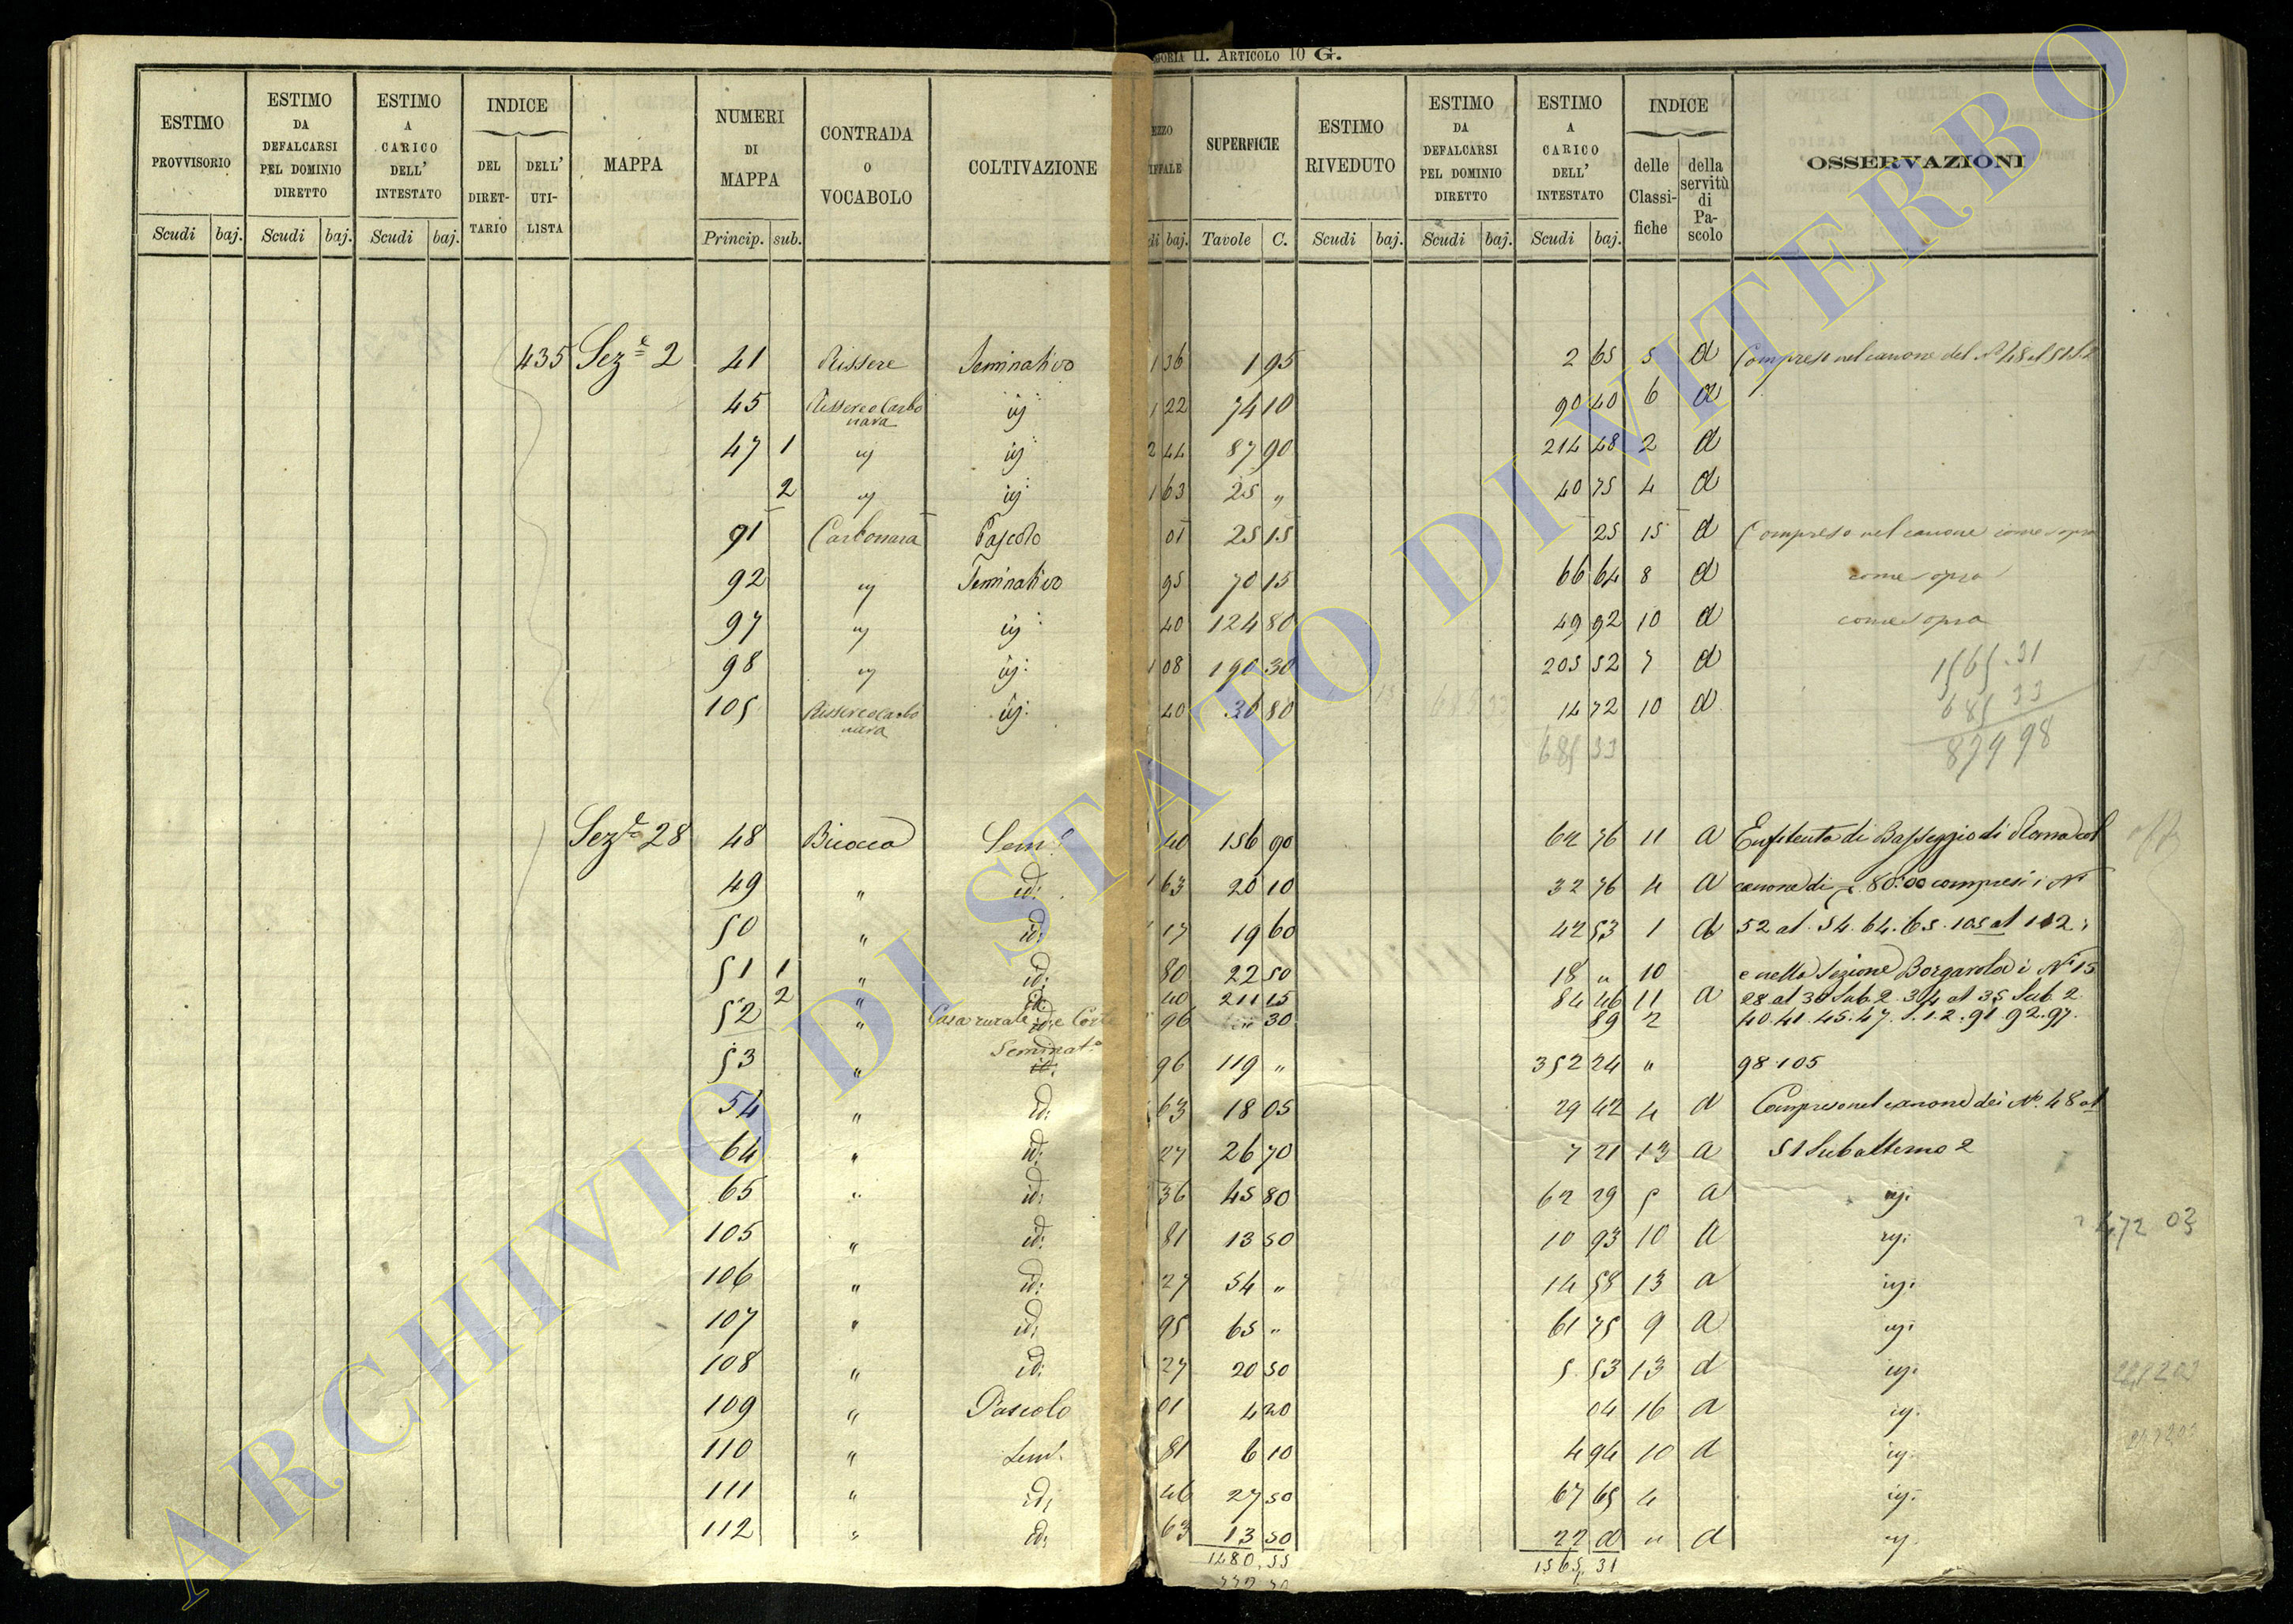 II. ARTICOLO 10 G.
ESTIMO PROVVISORIO Scudi baj.
ESTIMO DA DEFALCARSI PEL DOMINIO DIRETTO Scudi baj.
ESTIMO A CARICO DELL' INTESTATO Scudi baj.
INDICE DEL DIRET-TARIO DELL' UTI-LISTA
MAPPA
NUMERI DI MAPPA Princip. sub.
CONTRADA o VOCABOLO
COLTIVAZIONE
baj.
SUPERFICIE Tavole C.
ESTIMO RIVEDUTO Scudi baj.
ESTIMO DA DEFALCARSI PEL DOMINIO DIRETTO Scudi baj.
ESTIMO A CARICO DELL' INTESTATO Scudi baj.
INDICE delle Classi-fiche della servitù di Pa-scolo
OSSERVAZIONI
435 Sez.e 2 41 Rissere Seminativo 1 36 1 95 2 65 5 a Compreso nel canone del
45 Rissere o Carbonara id 1 22 74 10 90 40 6 a
47 1 id id 2 44 87 90 214 48 2 a
2 id id 1 63 25 " 40 75 4 a
91 Carbonara Pascolo 01 25 15 25 15 a Compreso nel canone come sopra
92 id Seminativo 95 70 15 66 64 8 a come sopra
97 id id 40 124 80 49 92 10 a come sopra
98 id id 1 08 190 30 205 52 7 a
105 Rissere o Carbonara id 40 36 80 14 72 10 a
1565.31
685 33
879 98
685 33
Sez.e 28 48 Bicocca Sem.o 40 156 90 62 76 11 a Enfiteuta di Basseggio di Roma col
49 " id: 63 20 10 32 76 4 a canone di 80:00 compresi i N.i
50 " id: 17 19 60 42 53 1 a 52 al 54. 64. 65. 105 al 112
51 1 " id: 80 22 50 18 " 10 e nella Sezione Borgarola i N.i 15
2 " id: 40 211 15 84 46 11 a 28 al 30 Sub. 2. 34 al 35 Sub 2
52 " Casa rurale e Corte 96 " 30 89 2 40. 41. 45. 47. s. 1. 2. 91. 92. 97.
53 " Seminat.o 96 119 " 352 24 " 98. 105
54 " id: 63 18 05 29 42 4 a Compreso nel canone dei N.i 48 al
64 " id: 27 26 70 7 21 13 a 51 Subalterno 2
65 " id: 36 45 80 62 29 5 a id:
105 " id: 81 13 50 10 93 10 a id:
472 03
106 " id: 27 54 " 14 58 13 a id:
107 " id: 95 65 " 61 75 9 a id:
108 " id: 27 20 50 5 53 13 a id:
109 " Pascolo 01 4 20 04 16 a id.
110 " Sem.o 81 6 10 4 94 10 a id.
111 " id: 46 27 50 67 65 4 id.
112 " id: 63 13 50 22 a " a id.
1480.55 1565 31
ARCHIVIO DI STATO DI VITERBO